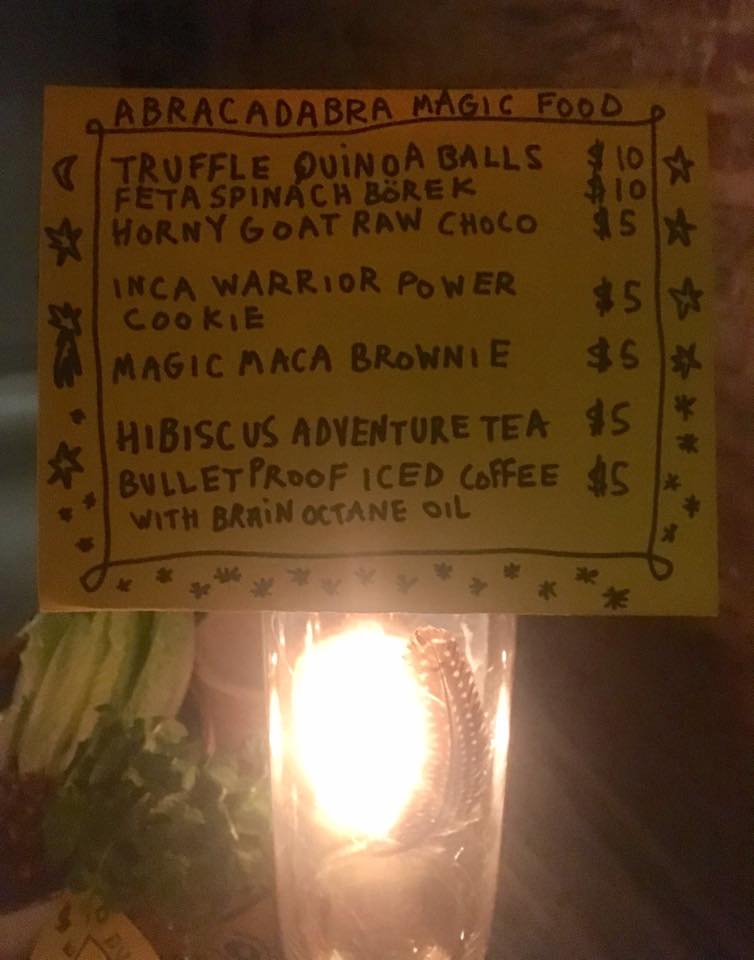 ABRACADABRA MAGIC FOOD
TRUFFLE QUINOA BALLS $10
FETA SPINACH BÖREK $10
HORNY GOAT RAW CHOCO $5
INCA WARRIOR POWER
COOKIE $5
MAGIC MACA BROWNIE $5
HIBISCUS ADVENTURE TEA $5
BULLETPROOF ICED COFFEE $5
WITH BRAIN OCTANE OIL